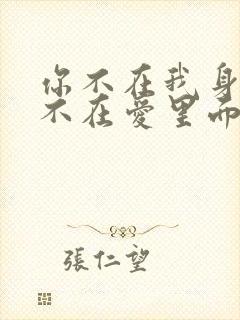 你不在我身
不在爱里而
張仁望